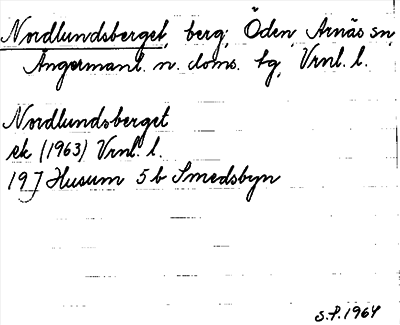 Nordlundsberget, berg, Öden, Arnäs sn,
Ångermanl. n. doms. tg, Vrnl. l.
Nordlundsberget
ek (1963) Vrnl. l.
19J Husum 5b Smedsbyn
S.P. 1964